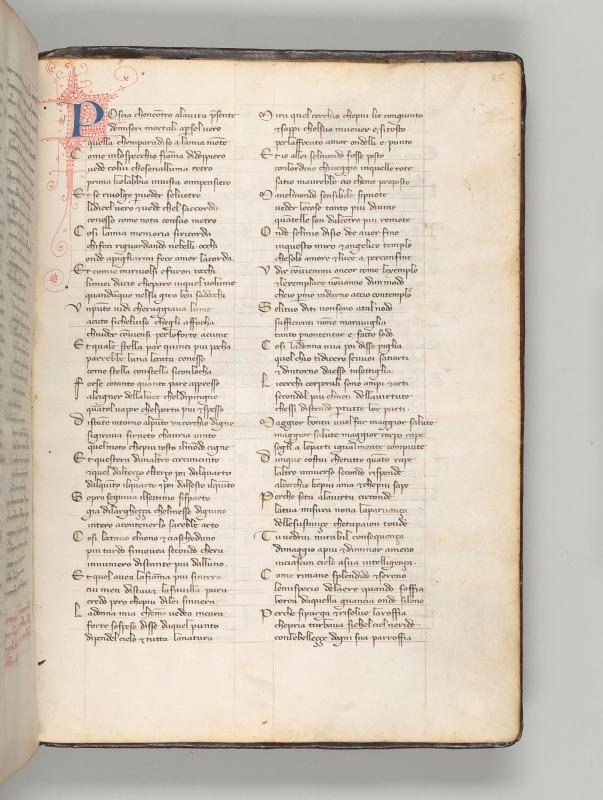 POscia chencōtro alauita p̄sente
demiseri mortali ap̄sel uero
quella chemparadisa lamia mēte
Come inlospecchio fiāma di doppiero
uede colui chesenalluma retro
prima chelabbia inuista oimpensiero
Et se riuolge p̄ueder seluetro
lidice uero & uede chel saccorda
conesso come nota consuo metro
Cosi lamia memoria siricorda
chifeci riguardando nebelli occhi
onde apigliarmi fece amor lacorda
Et comio miriuolsi & furon tocchi
limiei dacio chepare inquel uolume
quandūque nelsu giro ben sadocchi
Vnpūto uidi cheraggiaua lume
acuto sicheluiso chegli affocha
chiuder cōuiensi perloforte acume
Et quale stella par quinci piu pocha
parrebbe luna locata conesso
come stella constella sicollocha
Forse cotanto quanto pare appresso
aleigner dellaluce cheldipingne
quātol uapor chelporta piu & spesso
Distāte intorno alpūto vn cerchio digne
sigiraua siratto chauria uinto
quel moto chepiu tosto ilmōdo cigne
Et questera dunaltro circumcinto
& quel dalterço elterço poi dalquarto
dalquīto ilquarto & poi dalsesto ilquīto
Sopra seguiua ilsettimo sisparto
gia dilarghezza chelmesso digiuno
intero acontenerlo sarebbe arto
Cosi lottauo elnono & caschoduno
piu tardo simouea secondo chera
innumero distante piu dalluno
Et quel auea lafiāma piu sincera
cu men distaua lafauilla pura
credo pero chepiu dilei sinuera
Ladonna mia chemi uedea incura
forte sospeso disse daquel punto
dipendel cielo & tutta lanatura
Mira quel cerchio chepiu lie congiunto
& sappi chelsuo muouere e sitosto
perlaffocato amor ondelli e punto
Et io allei selmondo fosse posto
conlordine chiueggio inquelle rote
satio maurebbe cio cheme proposto
Manelmondo sensibile sipuote
ueder lecose tanto piu diuine
quātelle son dalcētro piu remote
Onde selmio disio dee auer fine
inquesto miro & angelico templo
chesolo amore & luce a perconfine
Vdir cōuienmi ancor come lexemplo
& lexemplare nōuanno dun modo
cheio per me indarno accio contemplo
Selituo diti nonsono atal nodo
sufficienti none marauiglia
tanto pnontentar e facto sodo
Cosi ladonna mia poi disse piglia
quel chio tedicero seuuoi satiarti
& dintorno daesso tasottiglia
Licerchi corporali sono anpi & arti
secondol piu elmen dellauirtute
chessi distende p̄tutte lor parti
Maggior bonta uuol far maggior salute
maggior salute maggior corpo cape
segli a leparti igualmente compiute
Dunque costui chetutto quato rape
laltro uniuerso seconde risponde
alcerchio kepiu ama & chepiu sape
Perche setu alauirtu circonde
latua misura nona laparuença
dellesustançe chetapaion tonde
Tu uedrai mirabil consequença
dimaggio apiu & diminor ameno
inciascun cielo asua intelligença
Come rimane splendido & sereno
lemisperio delaere quando soffia
borea daquella guancia ondé leno
Perche sipurga & risolue laroffia
chepria turbaua sichel ciel neride
conlebellegge dogni sua parroffia